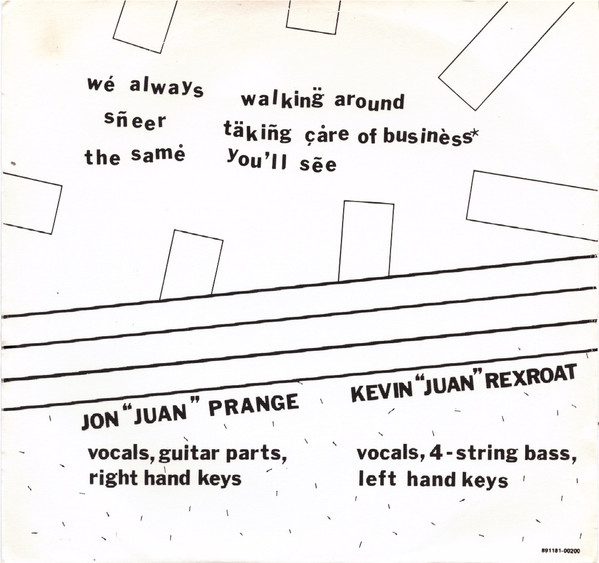 wé always
sñeer
the samė
walking̈ around
täkiñg çȧre of businèss*
you'll sëe
JON "JUAN" PRANGE
vocals, guitar parts,
right hand keys
KEVIN "JUAN" REXROAT
vocals, 4-string bass,
left hand keys
891181-00200